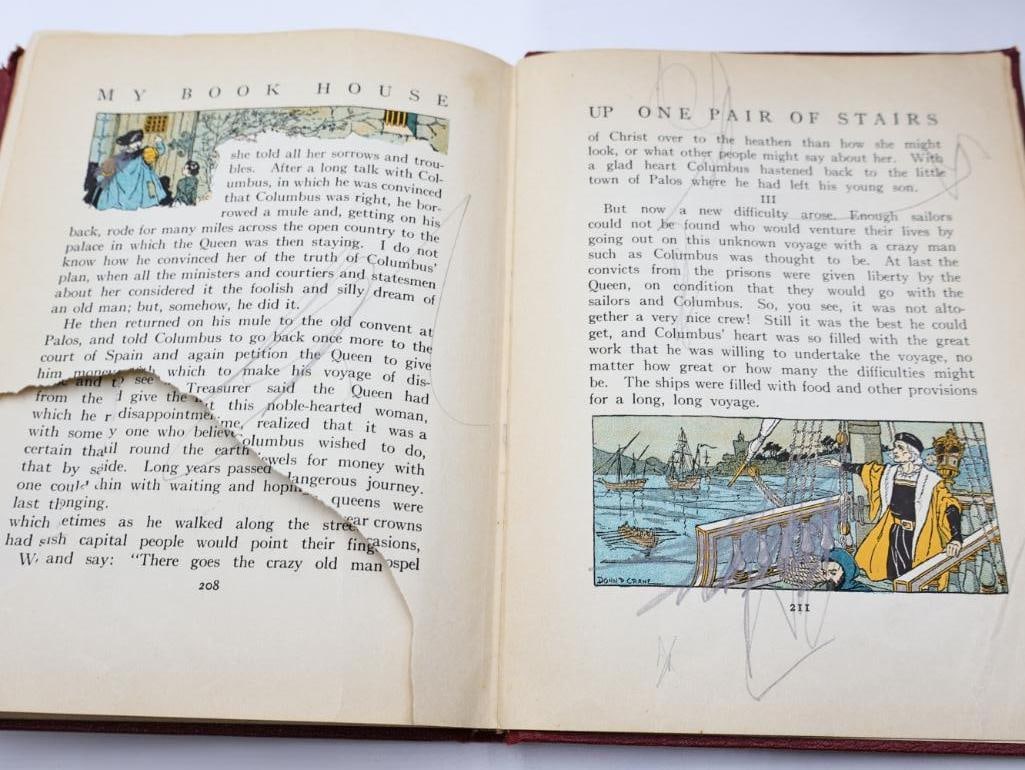 MY BOOK HOUSE
she told all her sorrows and trou-
bles. After a long talk with Col-
umbus, in which he was convinced
that Columbus was right, he bor-
rowed a mule and, getting on his
back, rode for many miles across the open country to the
palace in which the Queen was then staying. I do not
know how he convinced her of the truth of Columbus'
plan, when all the ministers and courtiers and statesmen
about her considered it the foolish and silly dream of
an old man; but, somehow, he did it.
He then returned on his mule to the old convent at
Palos, and told Columbus to go back once more to the
court of Spain and again petition the Queen to give
him money with which to make his voyage of dis-
and to see Treasurer said the Queen had
from the give the this noble-hearted woman,
which he disappointme me, realized that it was a
with some y one who believe olumbus wished to do,
certain tha il round the earth ewels for money with
that by s ide. Long years passed angerous journey.
one could hin with waiting and hoping queens were
last t onging.
which etimes as he walked along the stree ear crowns
had sh capital people would point their fing casions,
W and say: "There goes the crazy old man ospel
208
UP ONE PAIR OF STAIRS
of Christ over to the heathen than how she might
look, or what other people might say about her. With
a glad heart Columbus hastened back to the little
town of Palos where he had left his young son.
III
But now a new difficulty arose. Enough sailors
could not be found who would venture their lives by
going out on this unknown voyage with a crazy man
such as Columbus was thought to be. At last the
convicts from the prisons were given liberty by the
Queen, on condition that they would go with the
sailors and Columbus. So, you see, it was not alto-
gether a very nice crew! Still it was the best he could
get, and Columbus' heart was so filled with the great
work that he was willing to undertake the voyage, no
matter how great or how many the difficulties might
be. The ships were filled with food and other provisions
for a long, long voyage.
DONN P. CRANE
211